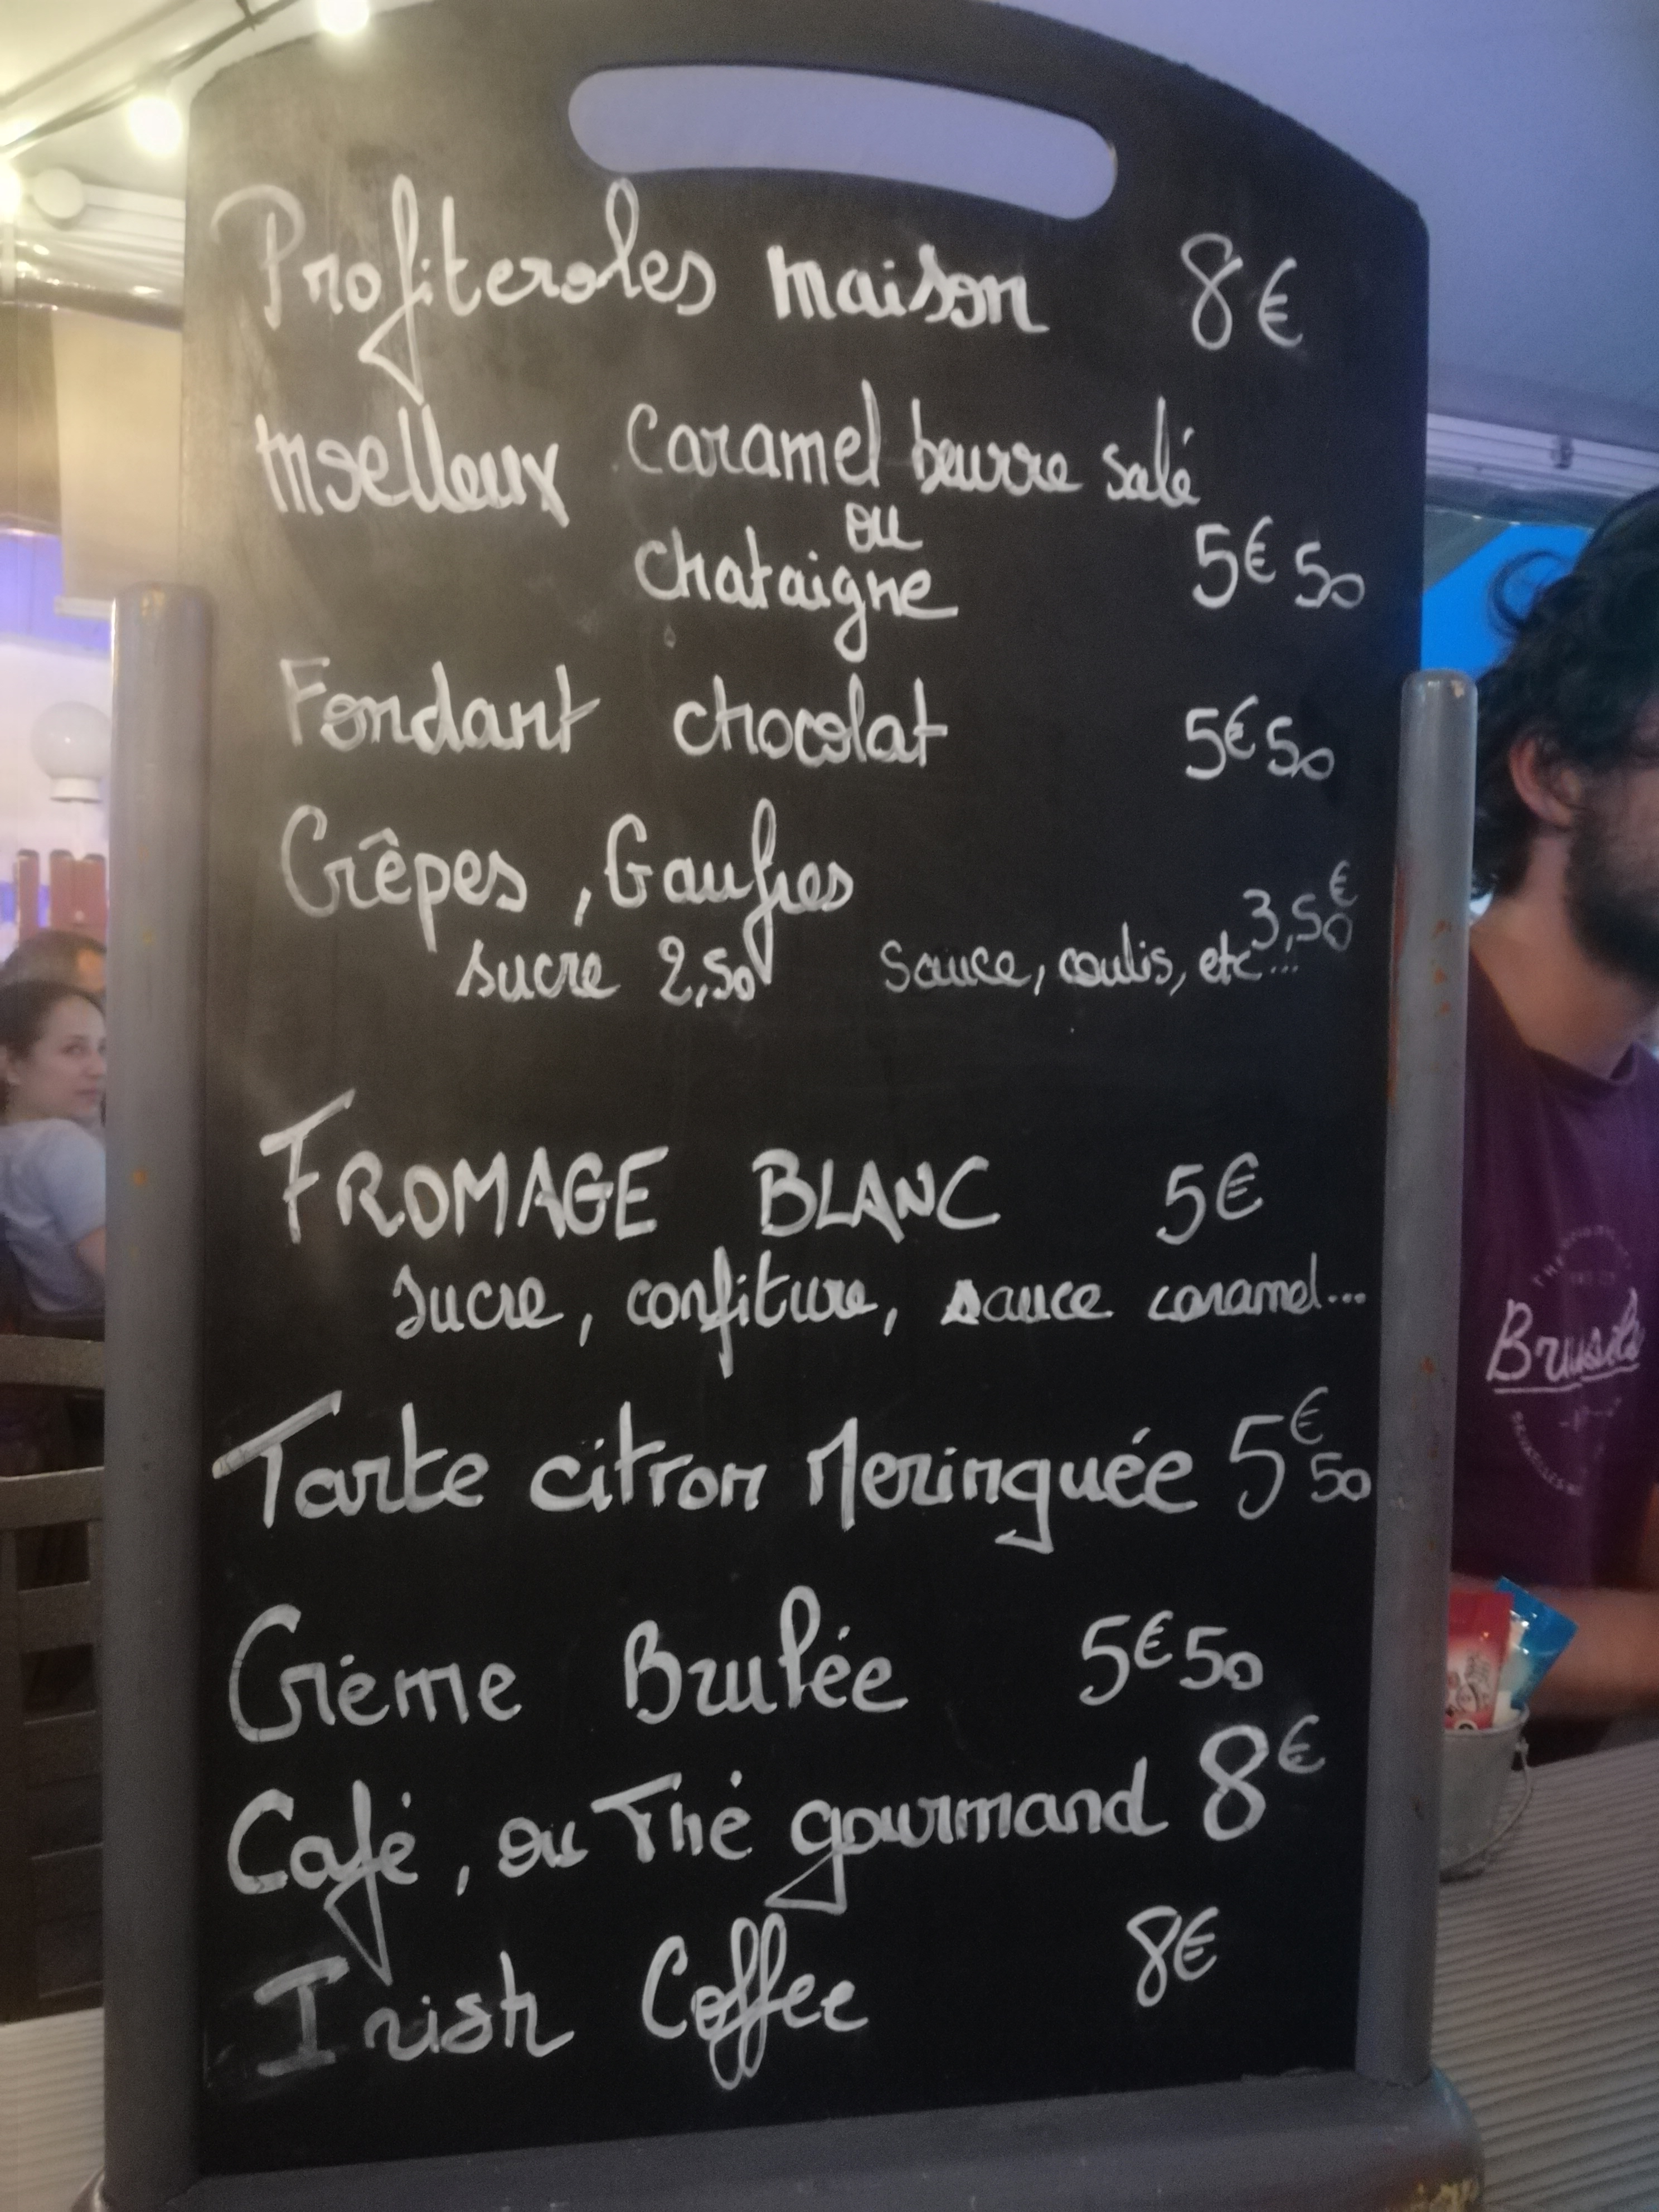 Profiteroles maison 8€
Moelleux Caramel beurre salé
ou
chataigne 5€50
Fondant chocolat 5€50
Crêpes, Gaufres
sucre 2,50 Sauce, coulis, etc... 3,50€
FROMAGE BLANC 5€
sucre, confiture, sauce caramel...
Tarte citron Meringuée 5€50
Crème Brulée 5€50
Café, ou Thé gourmand 8€
Irish Coffee 8€
THE
Brussels